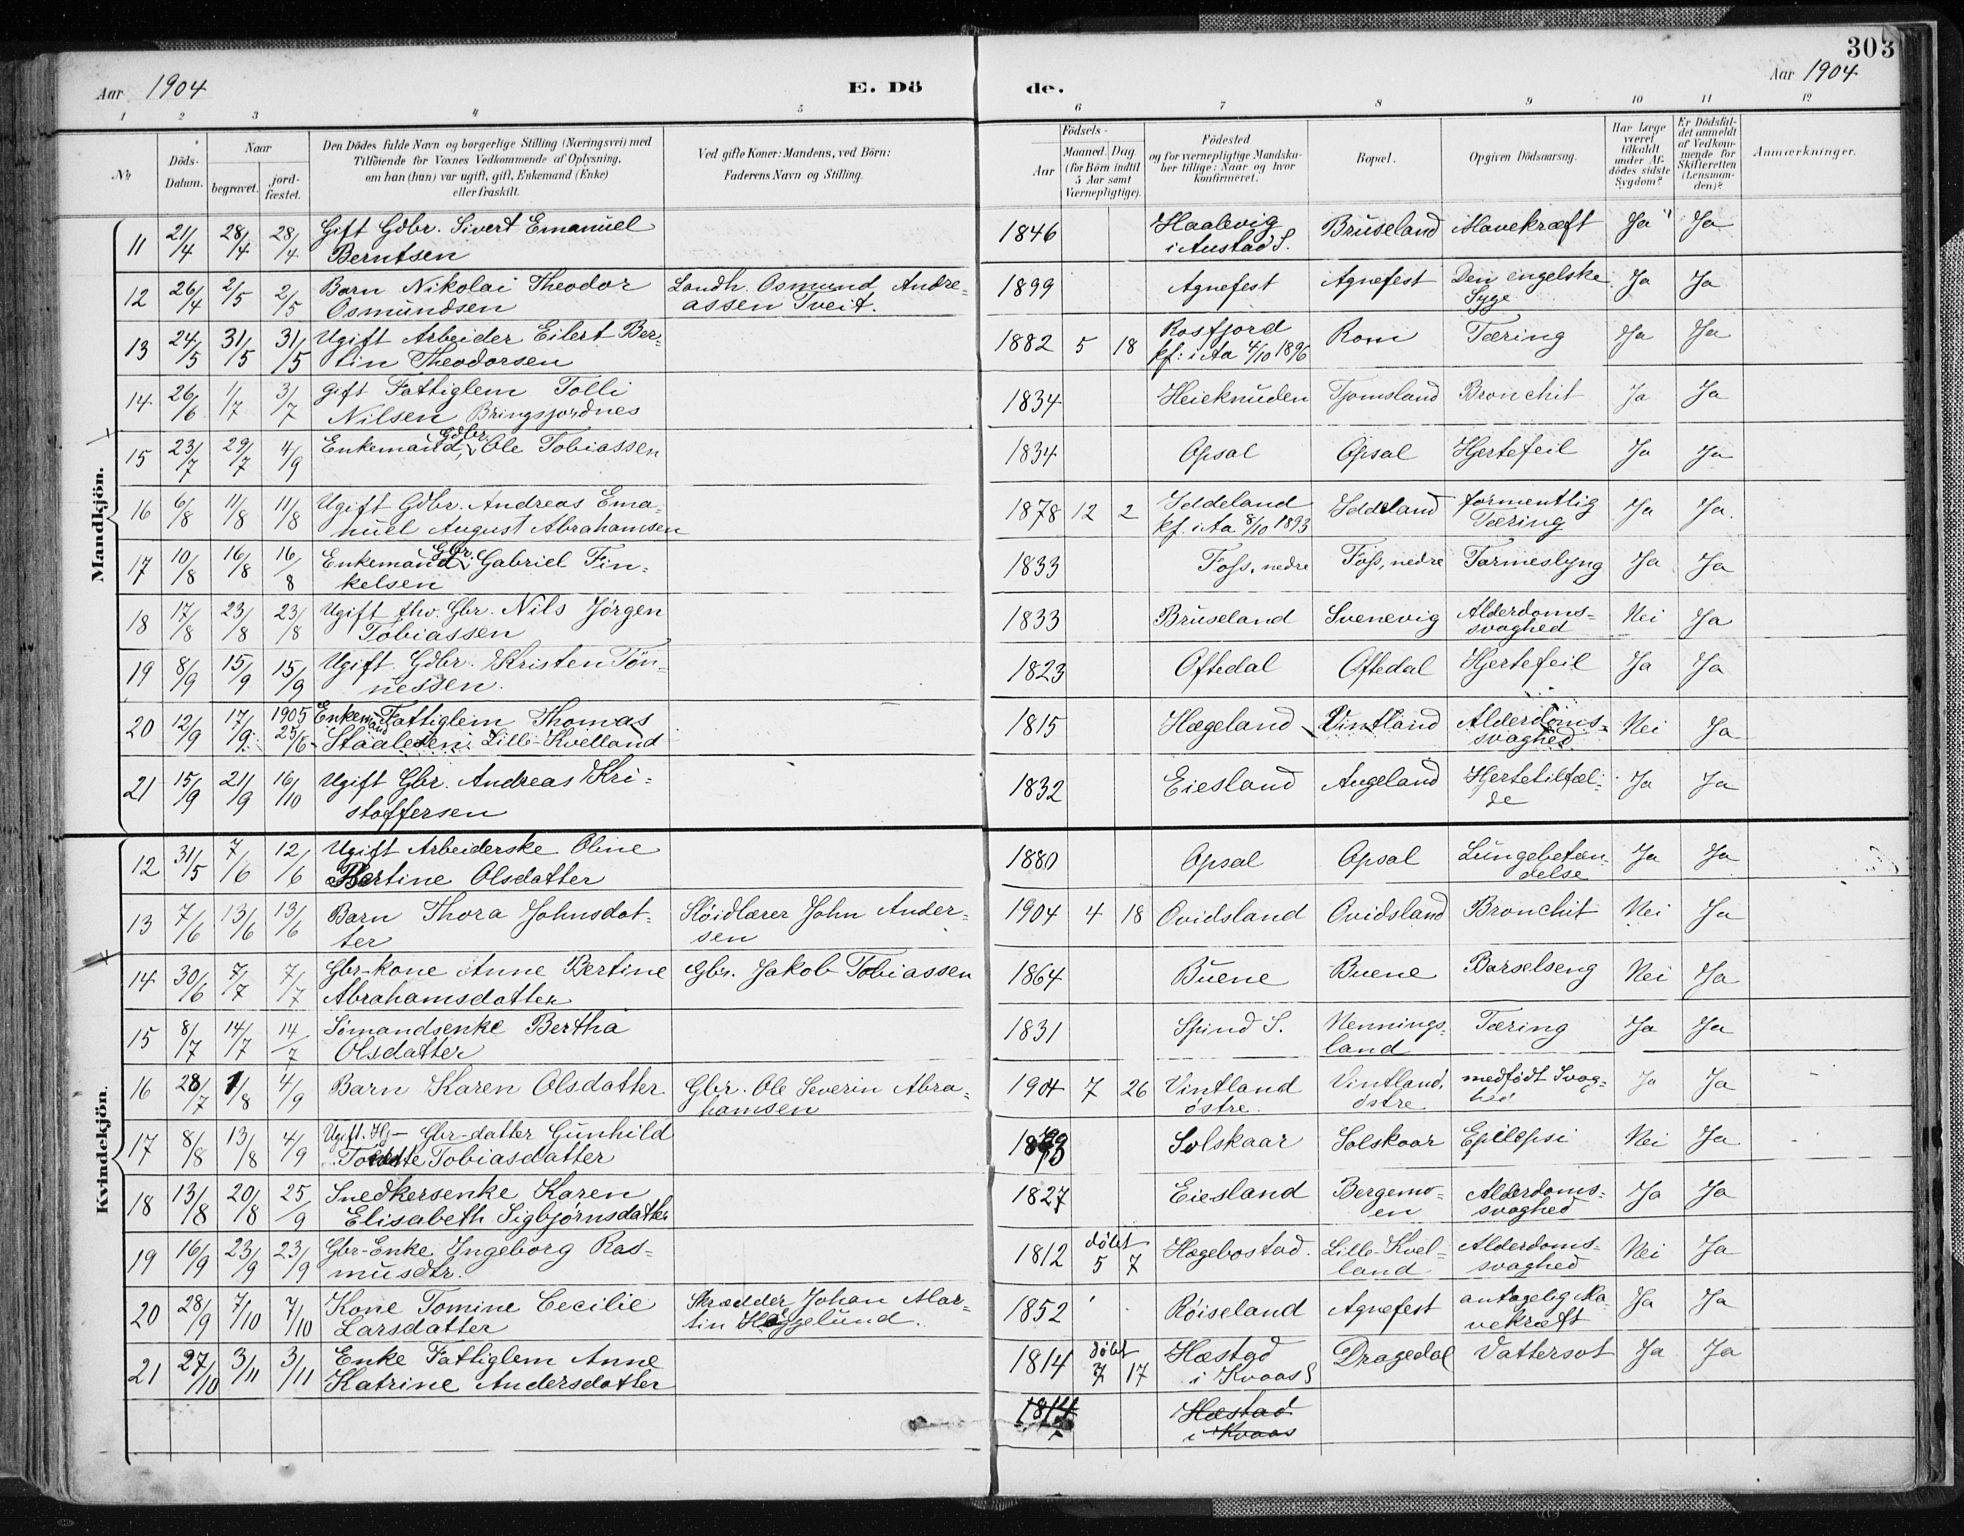 303
Aar 1904
E. Dö
de.
Aar 1904
1 2 3 4 5 6 7 8 9 10 11 12
No
Döds-Datum.
Naar
begravet.
jord-fæstet.
Den Dödes fulde Navn og borgerlige Stilling (Næringsvei) med
Tilföiende for Voxnes Vedkommende af Oplysning,
om han (hun) var ugift, gift, Enkemand (Enke)
eller fraskilt.
Ved gifte Koner: Mandens, ved Börn:
Faderens Navn og Stilling.
Födsels-
Aar
Maaned. Dag
(for Börn indtil
5 Aar samt
Værnepligtige).
Födested
og for værnepligtige Mandska-
ber tillige: Naar og hvor
konfirmeret.
Bopæl.
Opgiven Dödsaarsag.
Har Læge
været
tilkaldt
under Af-
dödes sidste
Sygdom?
Er Dödsfal-
det anmeldt
af Vedkom-
mende for
Skifteretten
(Lensman-
den)?
Anmærkninger.
Mandkjön.
11 21/4 28/4 28/4 Gift Gdbr. Sivert Emanuel
Berntsen
1846 Haalevig
i Austad S. Bruseland Mavekræft Ja Ja
12 26/4 2/5 2/5 Barn Nikolai Theodor
Osmundsen
Landh. Osmund Andre-
assen Tveit.
1899 Agnefest Agnefest Den engelske
Syge Ja Ja
13 24/5 31/5 31/5 Ugift Arbeider Eilert Ber-
tin Theodorsen
1882 5 18 Rosfjord
kf: i Aa 4/10 1896 Rom Tæring Ja Ja
14 26/6 1/7 3/7 gift Fattiglem Tolli
Nilsen Bringsjordnes
1834 Heieknuden Tjomsland Bronchit Ja Ja
15 23/7 29/7 4/9 Enkemand, Gdbr. Ole Tobiassen
1834 Opsal Opsal Hjertefeil Ja Ja
16 6/8 11/8 11/8 Ugift Gdbr. Andreas Ema-
nuel August Abrahamsen
1878 12 2 Iddeland
kf. i Aa 8/10 1893 Iddeland formentlig
Tæring Ja Ja
17 10/8 16/8 16/8 Enkemand Gbr. Gabriel Fin-
kelsen
1833 Foss, nedre Foss, nedre Tarmeslyng Ja Ja
18 17/8 23/8 23/8 Ugift fhv. Gbr. Nils Jörgen
Tobiassen
1833 Bruseland Svenevig Alderdoms-
svaghed Nei Ja
19 8/9 15/9 15/9 Ugift Gdbr. Kristen Tön-
nessen.
1823 Oftedal Oftedal Hjertefeil Ja Ja
20 12/9 17/9 1905 25/6 Enkemand Fattiglem Thomas
Staalesen Lille-Kvelland
1815 Hægeland Vintland Alderdoms-
svaghed Nei Ja
21 15/9 21/9 16/10 Ugift Gbr. Andreas Kri-
stoffersen
1832 Eiesland Augeland Hjertetilfæl-
de Ja Ja
Kvindekjön.
12 31/5 7/6 12/6 Ugift Arbeiderske Oline
Bertine Olsdatter
1880 Opsal Opsal Lungebetæn-
delse Ja Ja
13 7/6 13/6 13/6 Barn Thora Johnsdat-
ter
Slöidlærer John Ander-
sen
1904 4 18 Ovidsland Ovidsland Bronchit Nei Ja
14 30/6 7/7 7/7 Gbr-kone Anne Bertine
Abrahamsdatter
Gbr. Jakob Tobiassen
1864 Buene Buene Barselseng Nei Ja
15 8/7 14/7 14/7 Sömandsenke Bertha
Olsdatter
1831 Spind S. Nennings-
land Tæring Ja Ja
16 28/7 1/8 4/9 Barn Karen Olsdatter
Gbr. Ole Severin Abra-
hamsen
1904 7 26 Vintland
östre Vintland,
östre medfödt Svag-
hed Ja Ja
17 8/8 13/8 4/9 Ugift. Gbr-datter Gunhild
Tobiasdatter
Solskaar Solskaar Epilepsi Nei Ja
18 13/8 20/8 25/9 Snedkersenke Karen
Elisabeth Sigbjörnsdatter
1827 Eiesland Bergemo-
en Alderdoms-
svaghed Ja Ja
19 16/9 23/9 23/9 Gbr-Enke Ingeborg Ras-
musdtr.
1812 döbt
5 7 Hægebostad Lille-Kvel-
land Alderdoms-
svaghed Nei Ja
20 28/9 7/10 7/10 Kone Tomine Cecilie
Larsdatter
Skrædder Johan Mar-
tin Häggelund.
1852 Röiseland Agnefest antagelig Ma-
vekræft Ja Ja
21 27/10 3/11 3/11 Enke Fattiglem Anne
Katrine Andersdatter
1814 döbt
7 17 Hæstad
i Kvaas S Dragedal Vattersot Ja Ja
1814 Hæstad
i Kvaas